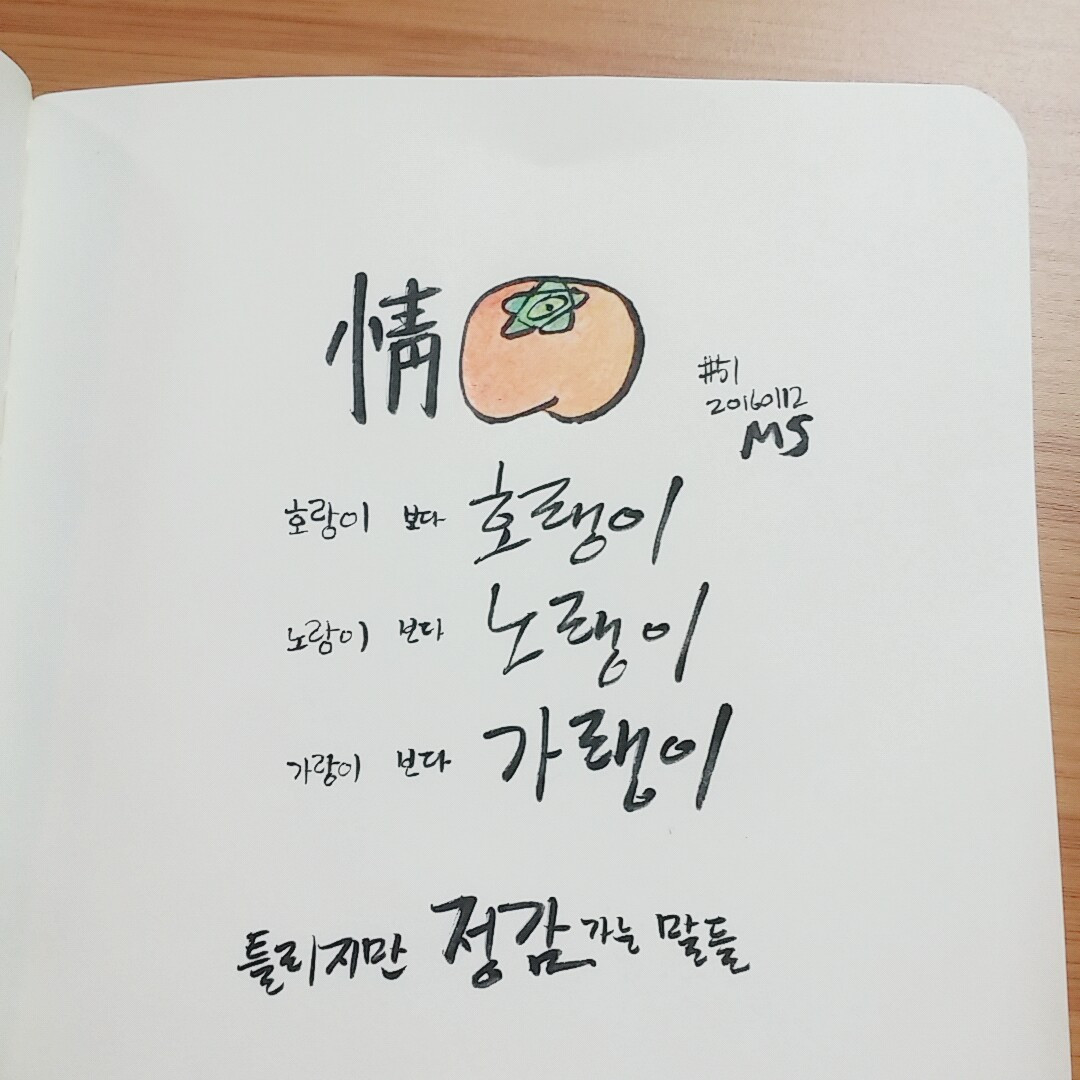 情
#51
20160112
MS
호랑이 보다 호랭이
노랑이 보다 노랭이
가랑이 보다 가랭이
틀리지만 정감가는 말들